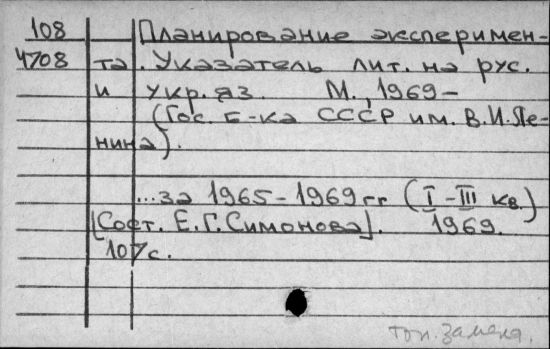 108 Планирование эксперимен-
4708 та. Указатель лит. на рус.
и укр. яз. М., 1969–
(Гос. б-ка СССР им. В.И. Ле-
нина).
...за 1965-1969 гг (I-III кв.)
[Сост. Е.Г. Симонова]. 1969.
107 с.